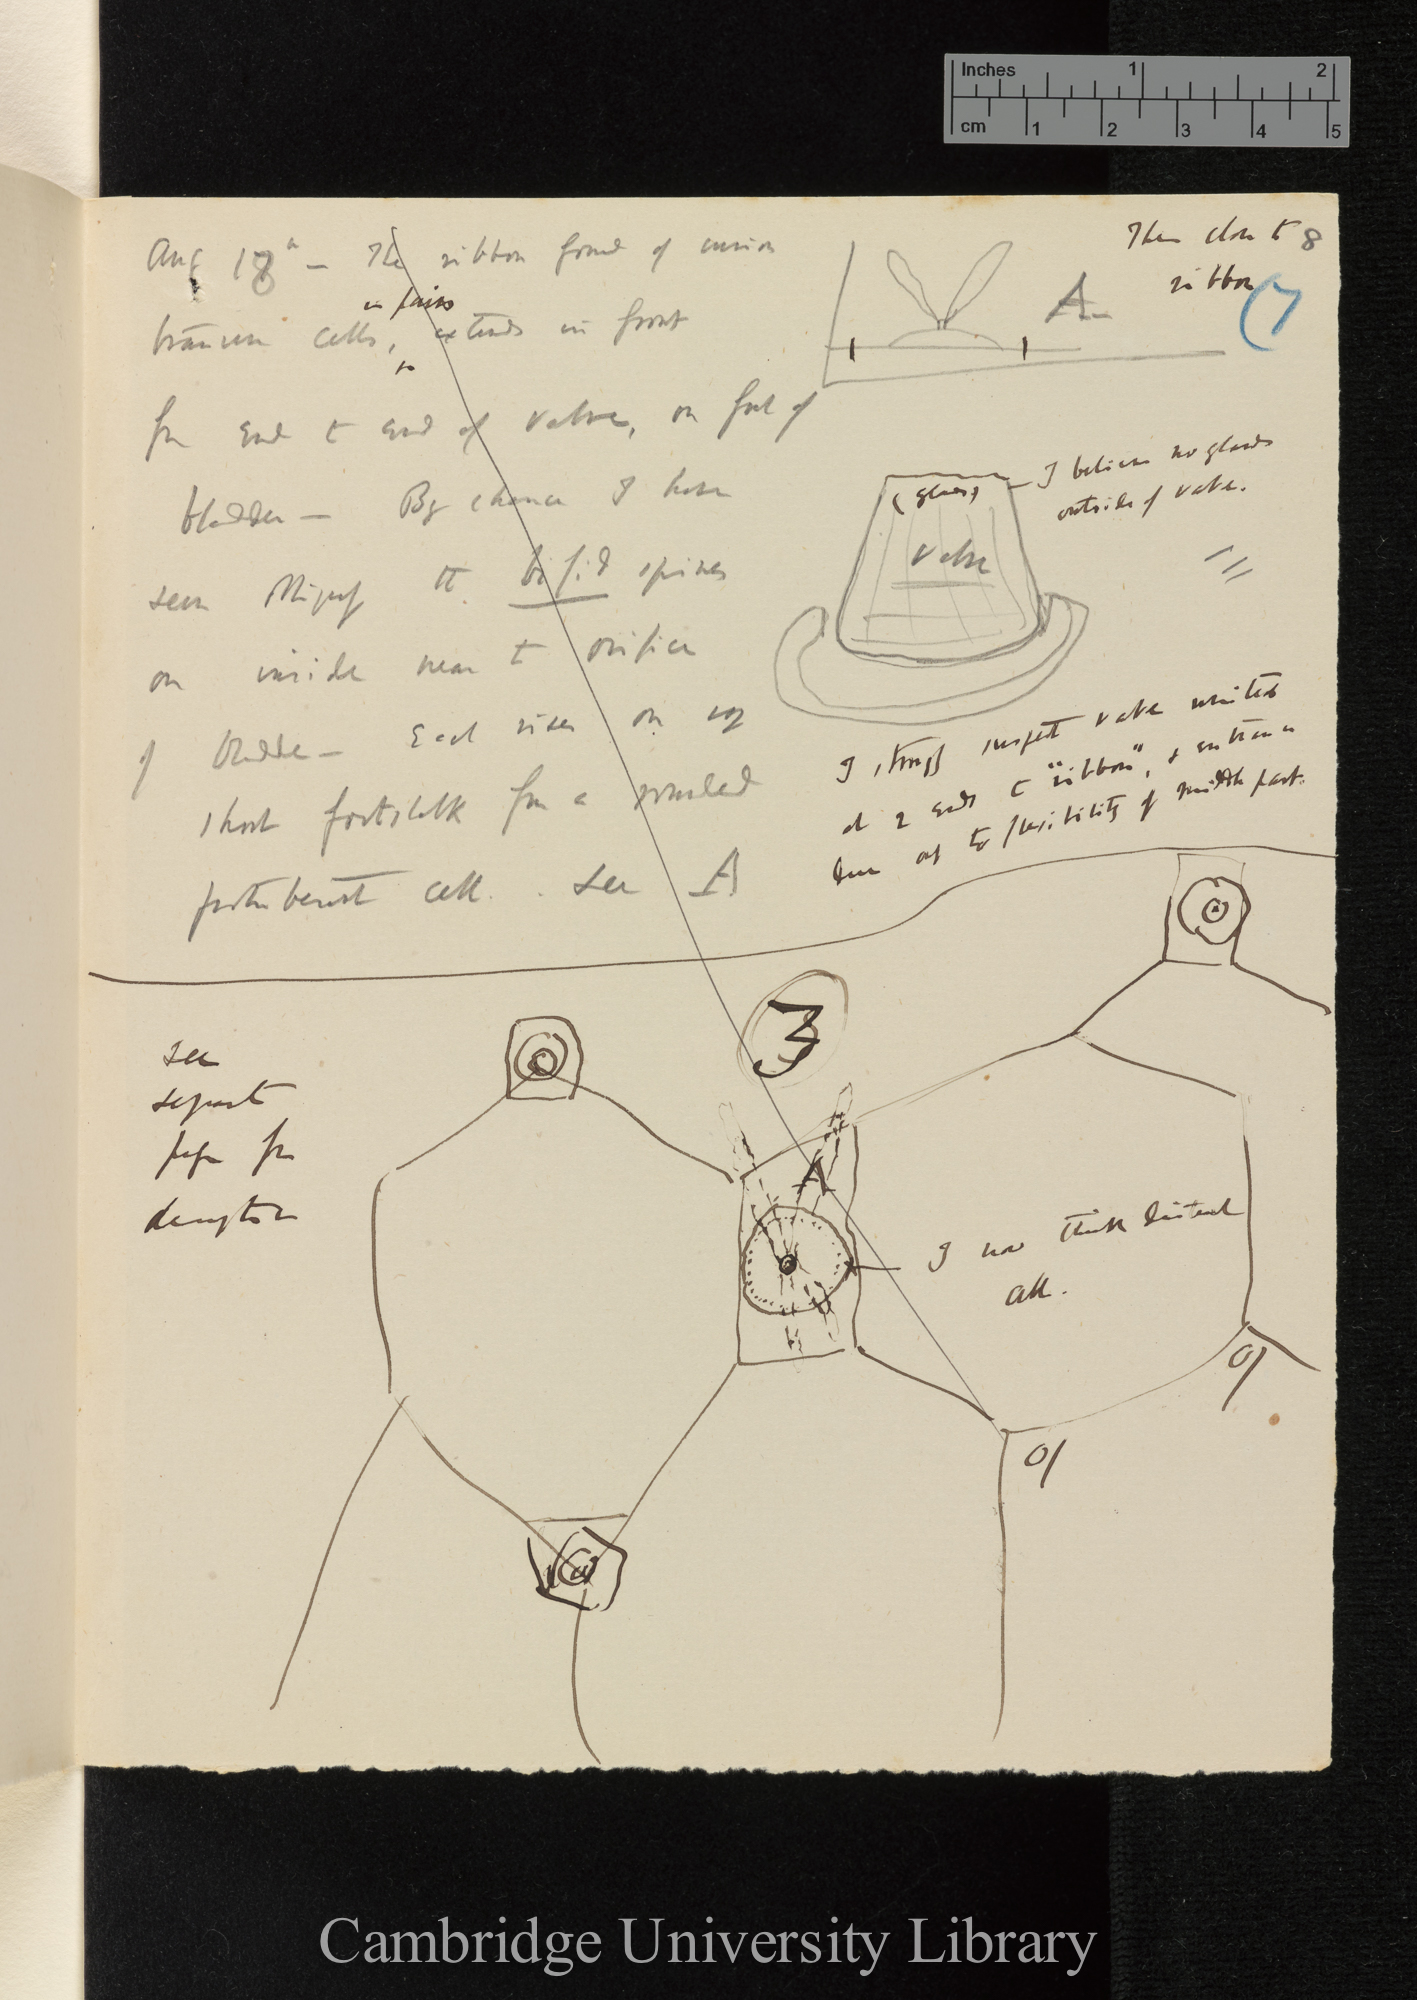 Inches 1 2
cm 1 2 3 4 5
Aug 18th — The ribbon formed of
transverse cells, extends in front
in pairs
to
from end to end of valve, on foot of
bladder — By chance I have
seen the bifid spines
on inside near t orifice
of bladder — Each rises on v
short footstalk from a rounded
protuberant cell. See A
8
Then close to
ribbon
7
A
(glands)
valve
I believe no glands
outside of valve.
I strongly suspect valve united
at 2 ends t "ribbon", & entrance
due only to flexibility of middle part.
3
see
separate
paper for
description
A
I now think distinct
cell.
Cambridge University Library